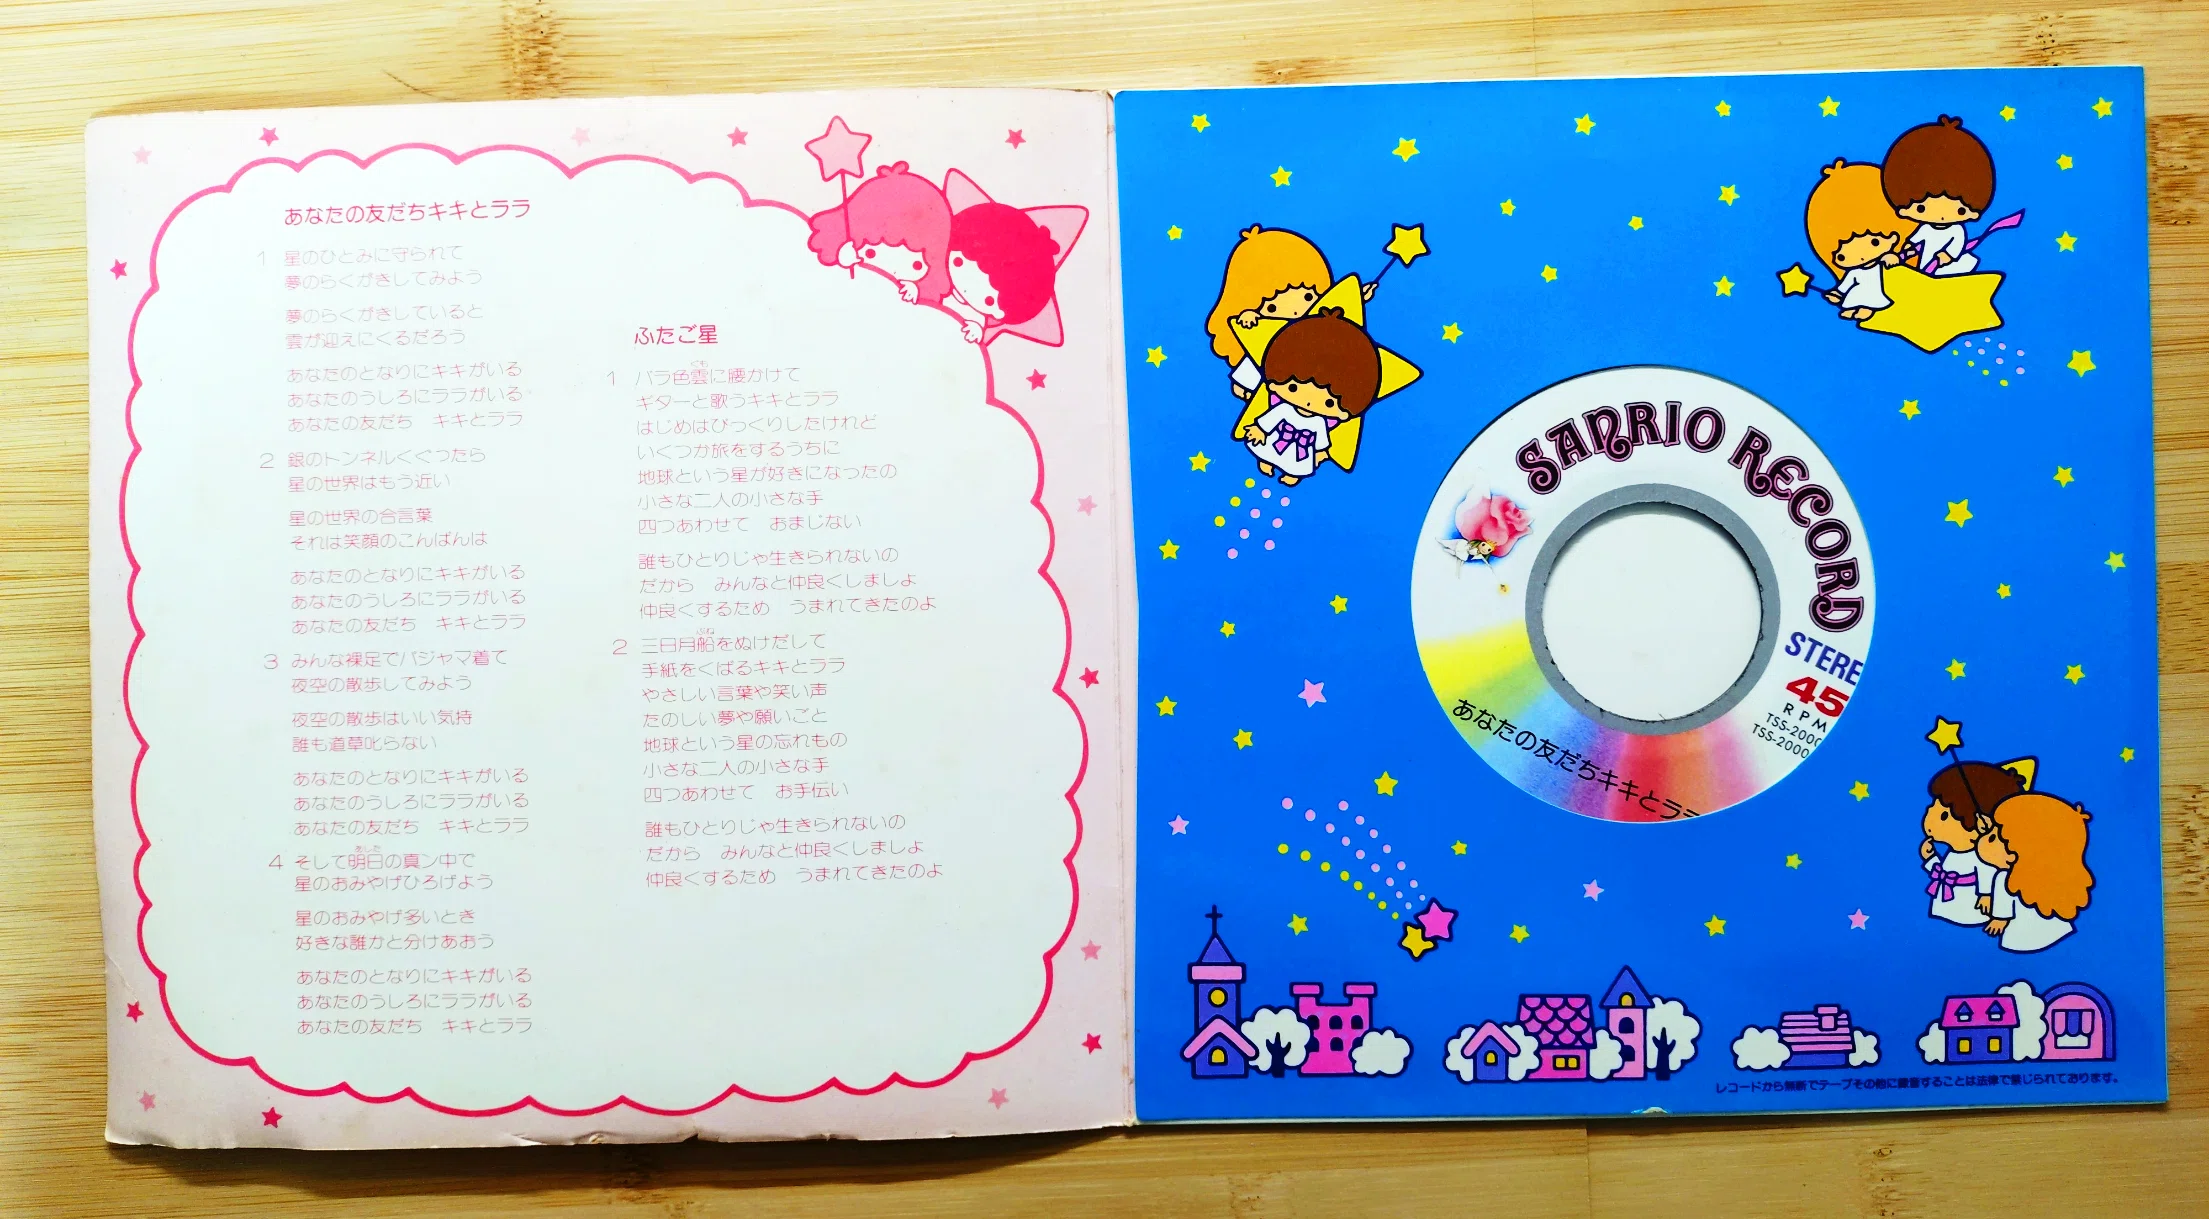 あなたの友だちキキとララ
1 星のひとみに守られて
夢のらくがきしてみよう
夢のらくがきしていると
雲が迎えにくるだろう
あなたのとなりにキキがいる
あなたのうしろにララがいる
あなたの友だち　キキとララ
2 銀のトンネルくぐったら
星の世界はもう近い
星の世界の合言葉
それは笑顔のこんばんは
あなたのとなりにキキがいる
あなたのうしろにララがいる
あなたの友だち　キキとララ
3 みんな裸足でパジャマ着て
夜空の散歩してみよう
夜空の散歩はいい気持
誰も道草叱らない
あなたのとなりにキキがいる
あなたのうしろにララがいる
あなたの友だち　キキとララ
あした
4 そして明日の真ン中で
星のおみやげひろげよう
星のおみやげ多いとき
好きな誰かと分けあおう
あなたのとなりにキキがいる
あなたのうしろにララがいる
あなたの友だち　キキとララ
ふたご星
くも
1 バラ色雲に腰かけて
ギターと歌うキキとララ
はじめはびっくりしたけれど
いくつか旅をするうちに
地球という星が好きになったの
小さな二人の小さな手
四つあわせて　おまじない
誰もひとりじゃ生きられないの
だから　みんなと仲良くしましょ
仲良くするため　うまれてきたのよ
ふね
2 三日月船をぬけだして
手紙をくばるキキとララ
やさしい言葉や笑い声
たのしい夢や願いごと
地球という星の忘れもの
小さな二人の小さな手
四つあわせて　お手伝い
誰もひとりじゃ生きられないの
だから　みんなと仲良くしましょ
仲良くするため　うまれてきたのよ
SANRIO RECORD
STERE
45
RPM
TSS-200
TSS-2000
あなたの友だちキキとララ
レコードから無断でテープその他に録音することは法律で禁じられております。